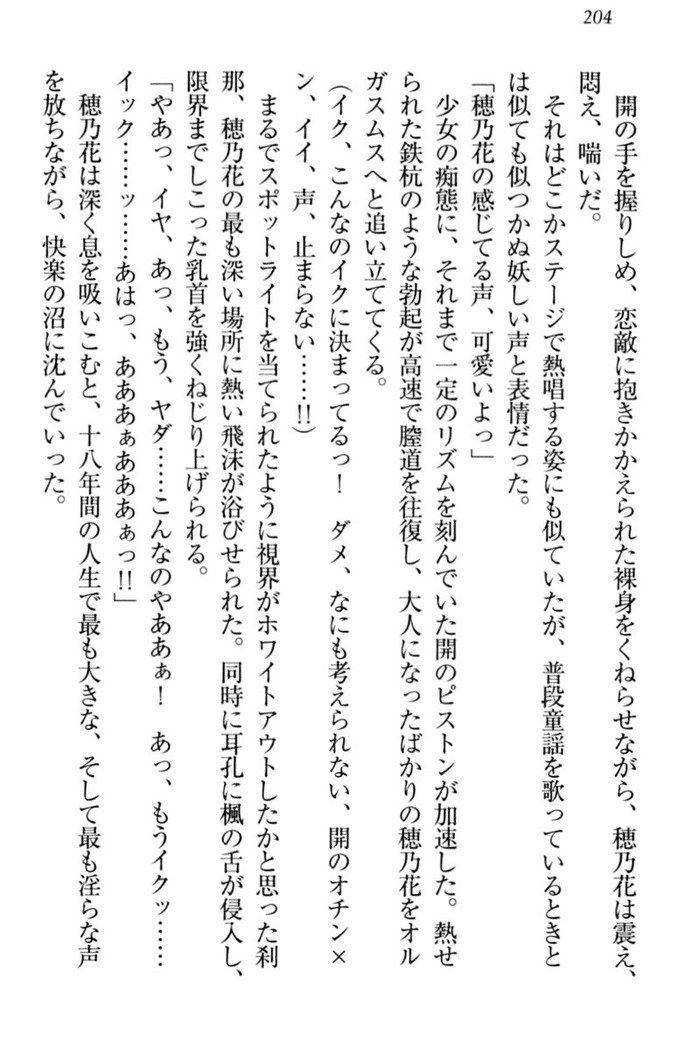 204
開の手を握りしめ、恋敵に抱きかかえられた裸身をくねらせながら、穂乃花は震え、
悶え、喘いだ。
それはどこかステージで熱唱する姿にも似ていたが、普段童謡を歌っているときと
は似ても似つかぬ妖しい声と表情だった。
「穂乃花の感じてる声、可愛いよっ」
少女の痴態に、それまで一定のリズムを刻んでいた開のピストンが加速した。熱せ
られた鉄杭のような勃起が高速で膣道を往復し、大人になったばかりの穂乃花をオル
ガスムスへと追い立ててくる。
（イク、こんなのイクに決まってるっ！　ダメ、なにも考えられない、開のオチン×
ン、イイ、声、止まらない……!!）
まるでスポットライトを当てられたように視界がホワイトアウトしたかと思った刹
那、穂乃花の最も深い場所に熱い飛沫が浴びせられた。同時に耳孔に楓の舌が侵入し、
限界までしこった乳首を強くねじり上げられる。
「やあっ、イヤ、あっ、もう、ヤダ……こんなのやああぁ！　あっ、もうイクッ……
イック……ッ……あはっ、あああぁあああぁっ!!」
穂乃花は深く息を吸いこむと、十八年間の人生で最も大きな、そして最も淫らな声
を放ちながら、快楽の沼に沈んでいった。